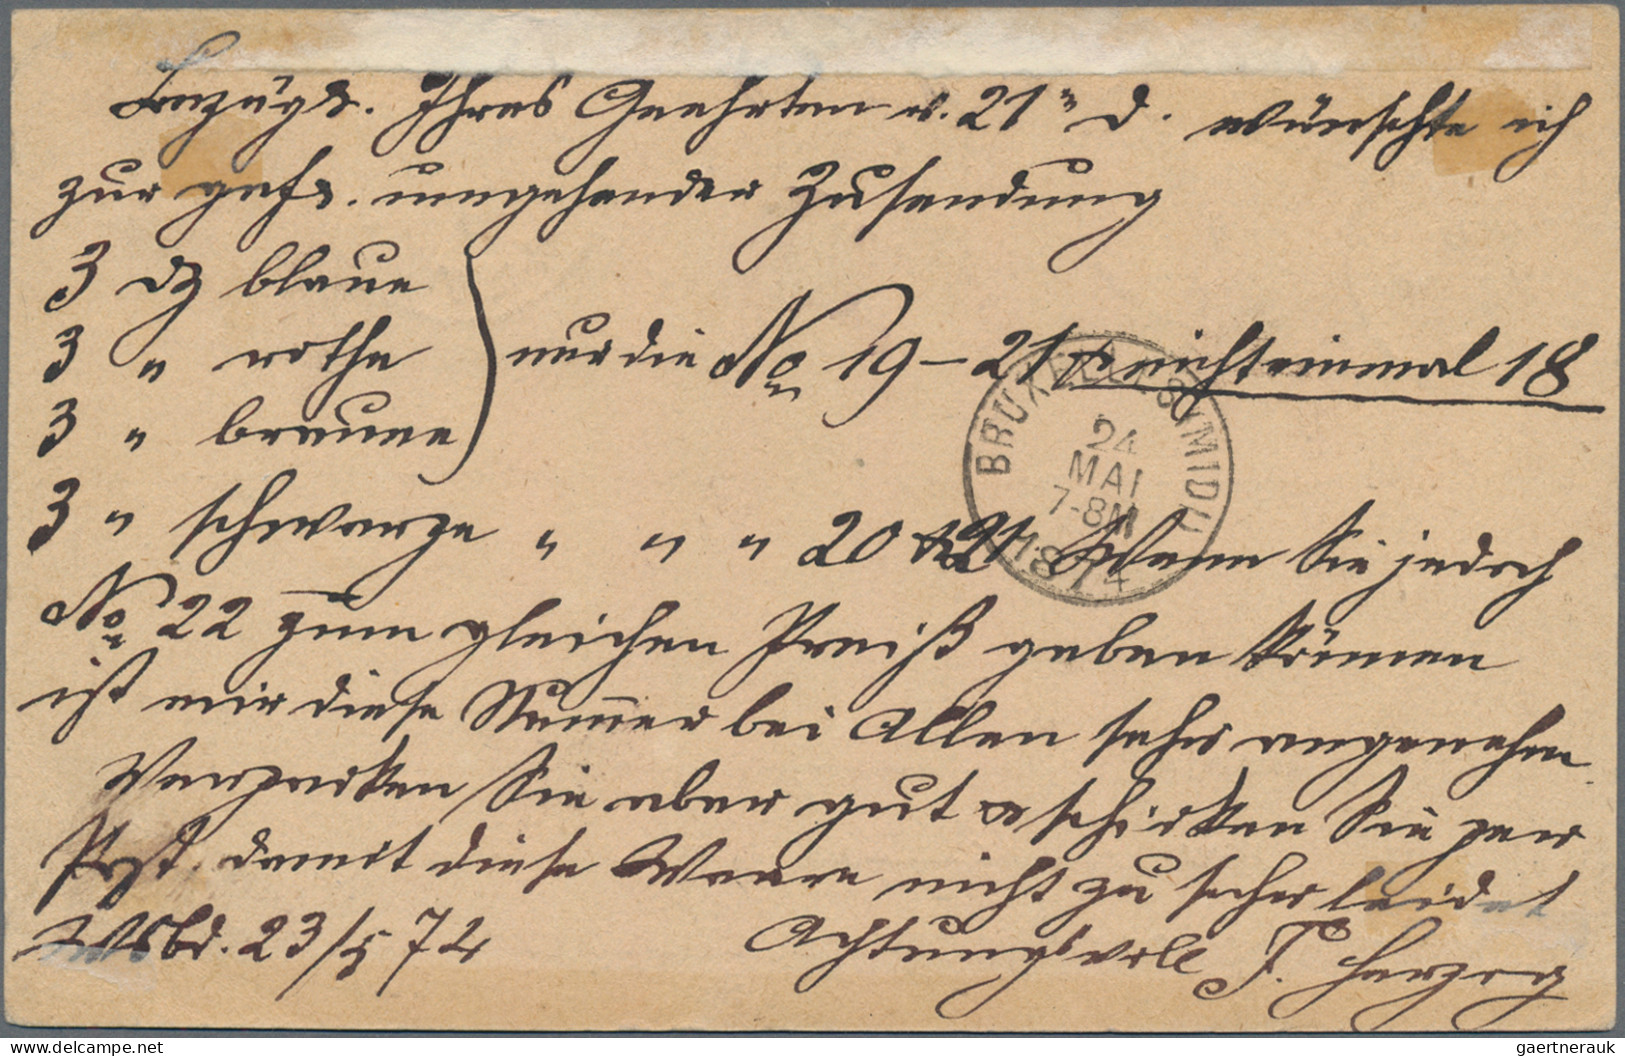 Bezügl. Ihres Geehrten v. 21n d. wünschte ich
zur gefl. umgehenden Zusendung
3 dz blaue
3 " rothe
3 " braune
nur die No 19 - 21 nicht einmal 18
3 " schwarze " " " 20 & 21 Wenn Sie jedoch
No 22 zum gleichen Preiß geben können
ist mir diese Numer bei Allen sehr angenehm.
Verpacken Sie aber gut & schicken Sie per
Post, damit diese Waare nicht zu sehr leidet
Wsbd. 23/5 74
Achtungsvoll F. Herzog
BRUXELLES (MIDI)
24
MAI
7-8M
1874
www.delcampe.net
gaertnerauk